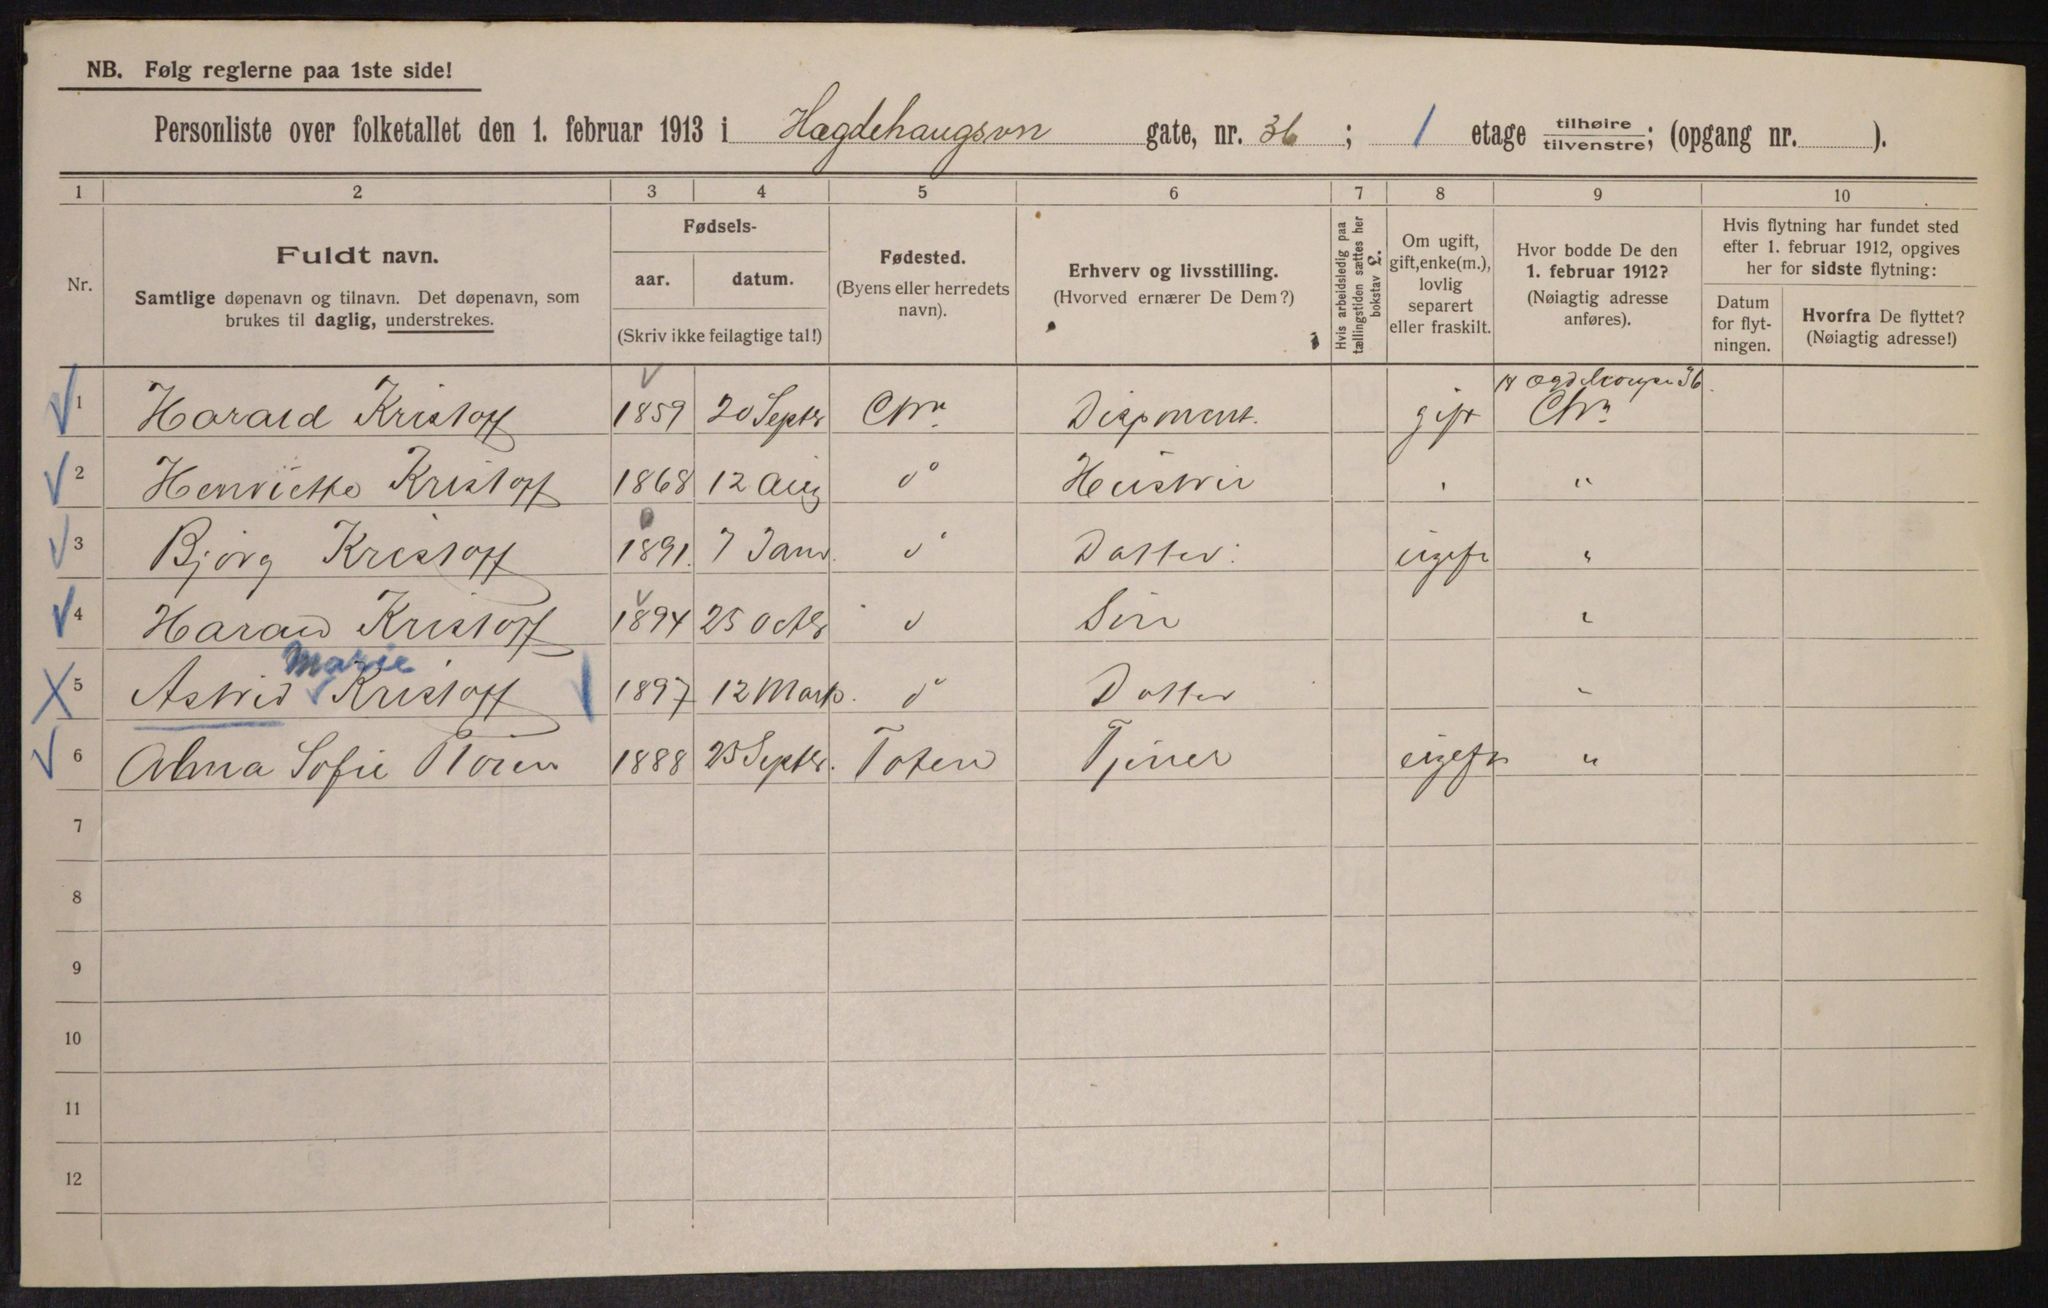 NB. Følg reglerne paa 1ste side!
Personliste over folketallet den 1. februar 1913 i Hægdehaugsvn gate, nr. 36; 1 etage tilhøire / tilvenstre; (opgang nr. ).
1 2 3 4 5 6 7 8 9 10
Nr.
Fuldt navn.
Samtlige døpenavn og tilnavn. Det døpenavn, som
brukes til daglig, understrekes.
Fødsels-
aar. datum.
(Skriv ikke feilagtige tal!)
Fødested.
(Byens eller herredets
navn).
Erhverv og livsstilling.
(Hvorved ernærer De Dem?)
Hvis arbeidsledig paa
tællingstiden sættes her
bokstav L.
Om ugift,
gift, enke(m.),
lovlig
separert
eller fraskilt.
Hvor bodde De den
1. februar 1912?
(Nøiagtig adresse
anføres).
Hvis flytning har fundet sted
efter 1. februar 1912, opgives
her for sidste flytning:
Datum
for flyt-
ningen.
Hvorfra De flyttet?
(Nøiagtig adresse!)
1 Harald Kristoff 1859 20 Septr Chra Disponent. gift 36 Chra
2 Henriette Kristoff 1868 12 Aug do Hustru " "
3 Bjørg Kristoff 1891. 7 Janr. do Datter. ugift "
4 Harald Kristoff 1894 25 Octbr d Søn "
Marie
5 Astrid Kristoff 1897 12 Marts. do Datter "
6 Alma Sofie 1888 25 Septbr. Toten Tjener ugift "
7
8
9
10
11
12